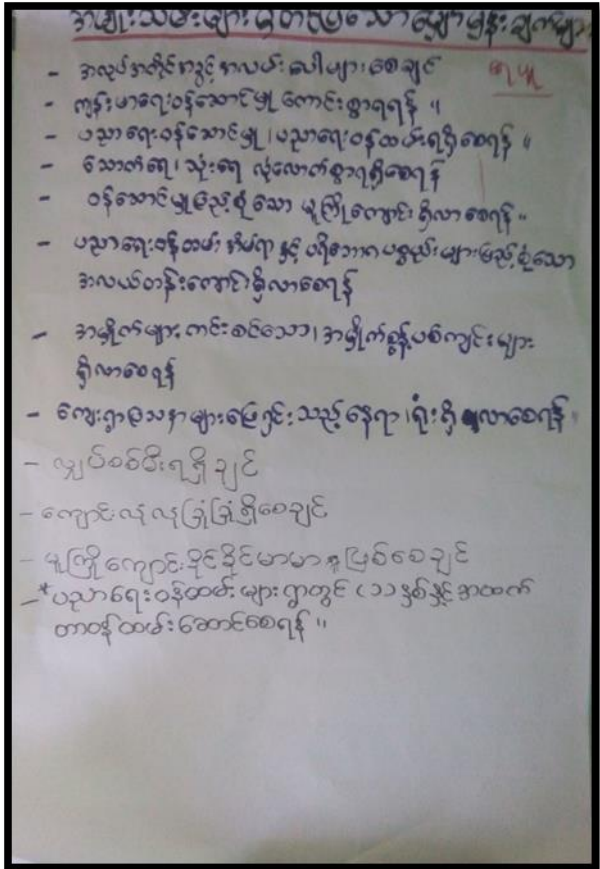 အမျိုးသမီးများမှတင်ပြသောမျှော်မှန်းချက်များ
- အလုပ်အကိုင်အခွင့်အလမ်းပေါများစေချင်
- ကျန်းမာရေးဝန်ဆောင်မှုကောင်းစွာရရန်။
- ပညာရေးဝန်ဆောင်မှု၊ ပညာရေးဝန်ထမ်းရရှိစေရန်။
- သောက်ရေ၊ သုံးရေ လုံလောက်စွာရရှိစေရန်
- ဝန်ဆောင်မှုပြည့်စုံသော မူကြိုကျောင်းရှိလာစေရန်။
- ပညာရေးဝန်ထမ်းအိမ်ရာနှင့် ပရိဘောဂပစ္စည်းများပြည့်စုံသော
အလယ်တန်းကျောင်းရှိလာစေရန်
- အမှိုက်များကင်းစင်သော၊ အမှိုက်စွန့်ပစ်ကျင်းများ
ရှိလာစေရန်
- ကျေးရွာပြဿနာများဖြေရှင်းသည့်နေရာ၊ ရုံးရှိလာစေရန်။
- လျှပ်စစ်မီးရရှိချင်
- ကျောင်းလုံလုံခြုံခြုံရှိစေချင်
- မူကြိုကျောင်းခိုင်ခိုင်မာမာဖြစ်စေချင်
- *ပညာရေးဝန်ထမ်းများရွာတွင် (၁) နှစ်နှင့်အထက်
တာဝန်ထမ်းဆောင်စေရန်။